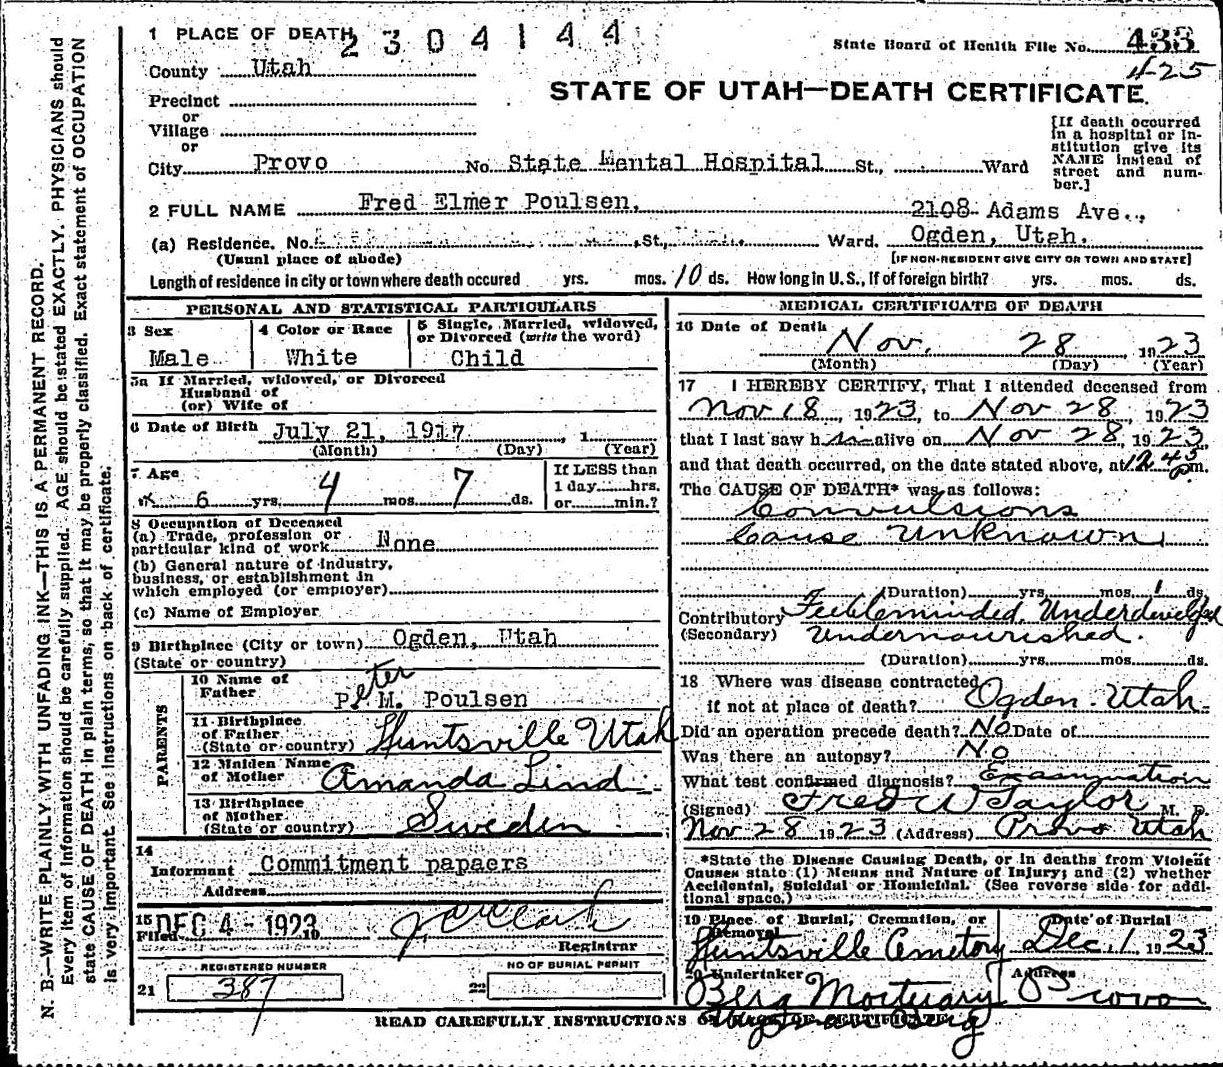 N. B.—WRITE PLAINLY WITH UNFADING INK—THIS IS A PERMANENT RECORD.
Every item of information should be carefully supplied. AGE should be stated EXACTLY. PHYSICIANS should
state CAUSE OF DEATH in plain terms, so that it may be properly classified. Exact statement of OCCUPATION
is very important. See instructions on back of certificate.
1 PLACE OF DEATH
2304144
State Board of Health File No. 433
425
County Utah
STATE OF UTAH—DEATH CERTIFICATE.
Precinct
or
Village
or
City Provo No. State Mental Hospital St., Ward
[If death occurred
in a hospital or in-
stitution give its
NAME instead of
street and num-
ber.]
2 FULL NAME Fred Elmer Poulsen.
2108 Adams Ave.,
(a) Residence. No. St., Ward. Ogden, Utah.
(Usual place of abode) [IF NON-RESIDENT GIVE CITY OR TOWN AND STATE]
Length of residence in city or town where death occured yrs. mos. 10 ds. How long in U.S., if of foreign birth? yrs. mos. ds.
PERSONAL AND STATISTICAL PARTICULARS
3 Sex
Male
4 Color or Race
White
5 Single, Married, widowed,
or Divorced (write the word)
Child
5a If Married, widowed, or Divorced
Husband of
(or) Wife of
6 Date of Birth July 21, 1917 , 1
(Month) (Day) (Year)
7 Age
6 yrs. 4 mos. 7 ds.
If LESS than
1 day hrs.
or min.?
8 Occupation of Deceased
(a) Trade, profession or
particular kind of work None
(b) General nature of industry,
business, or establishment in
which employed (or employer)
(c) Name of Employer
9 Birthplace (City or town) Ogden, Utah
(State or country)
PARENTS
10 Name of
Father Peter M. Poulsen
11 Birthplace
of Father
(State or country) Huntsville Utah
12 Maiden Name
of Mother Amanda Lind
13 Birthplace
of Mother
(State or country) Sweden
14
Informant Commitment papaers
Address
15
Filed DEC 4 - 1923 19
Registrar
REGISTERED NUMBER
21 387
NO OF BURIAL PERMIT
22
MEDICAL CERTIFICATE OF DEATH
16 Date of Death Nov. 28 1923
(Month) (Day) (Year)
17 I HEREBY CERTIFY, That I attended deceased from
Nov 18, 1923, to Nov 28, 1923
that I last saw him alive on Nov 28, 1923
and that death occurred, on the date stated above, at 12 45 p.m.
The CAUSE OF DEATH* was as follows:
Convulsions
Cause Unknown
(Duration) yrs. mos. 1 ds.
Contributory Feebleminded. Underdeveloped
(Secondary) Undernourished.
(Duration) yrs. mos. ds.
18 Where was disease contracted
if not at place of death? Ogden. Utah
Did an operation precede death? No Date of
Was there an autopsy? No
What test confirmed diagnosis? Examination
(Signed) Fred W Taylor M. D.
Nov 28 1923 (Address) Provo Utah
*State the Disease Causing Death, or in deaths from Violent
Causes state (1) Means and Nature of Injury; and (2) whether
Accidental, Suicidal or Homicidal. (See reverse side for addi-
tional space.)
19 Place of Burial, Cremation, or
Removal
Huntsville Cemetory
Date of Burial
Dec. 1 1923
20 Undertaker
Berg Mortuary
Address
Provo
READ CAREFULLY INSTRUCTIONS ON BACK OF CERTIFICATE